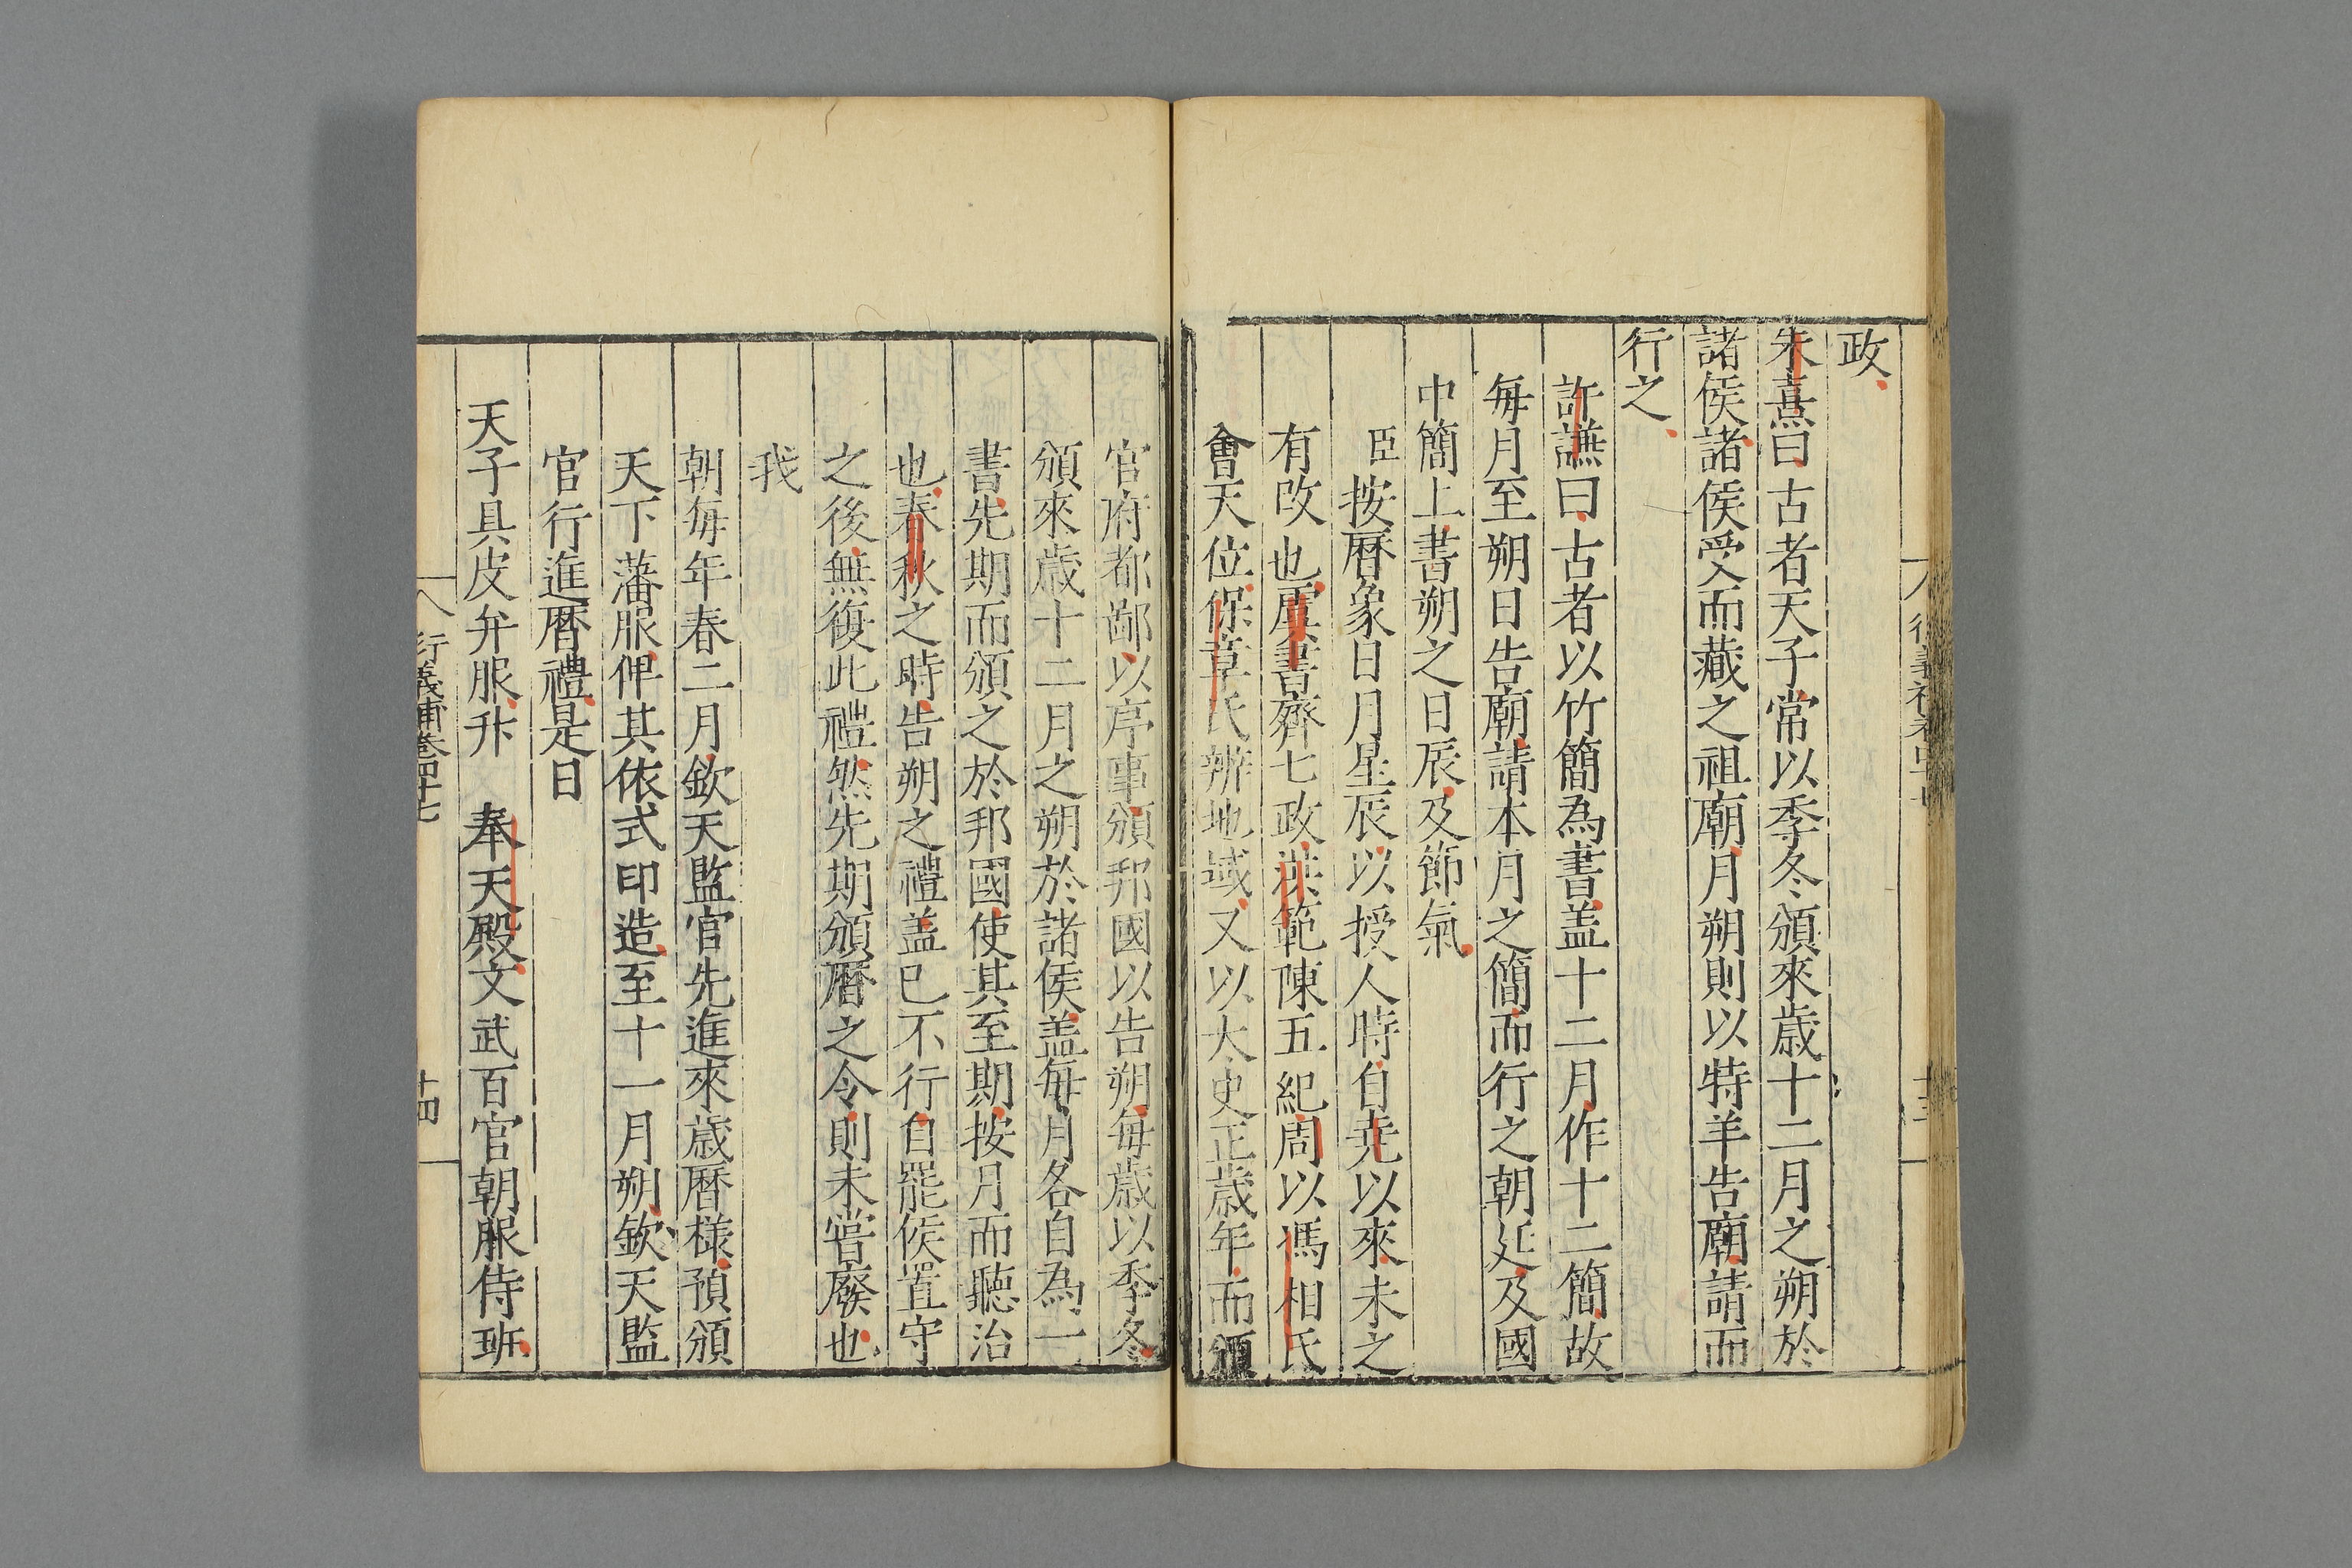 政
朱熹曰古者天子常以季冬頒來歲十二月之朔於
諸侯諸侯受而藏之祖廟月朔則以特羊告廟請而
行之
許謙曰古者以竹簡為書盖十二月作十二簡故
每月至朔日告廟請本月之簡而行之朝廷及國
中簡上書朔之日辰及節氣
臣按曆象日月星辰以授人時自堯以來未之
有改也虞書齊七政洪範陳五紀周以馮相氏
會天位保章氏辨地域又以大史正歲年而頒
官府都鄙以序事頒邦國以告朔每歲以季冬
頒來歲十二月之朔於諸侯盖每月各自為一
書先期而頒之於邦國使其至期按月而聽治
也春秋之時告朔之禮盖已不行自罷侯置守
之後無復此禮然先期頒曆之令則未嘗廢也
我
朝每年春二月欽天監官先進來歲曆樣預頒
天下藩服俾其依式印造至十一月朔欽天監
官行進曆禮是日
天子具皮弁服升 奉天殿文武百官朝服侍班
行義補卷四十七
十四